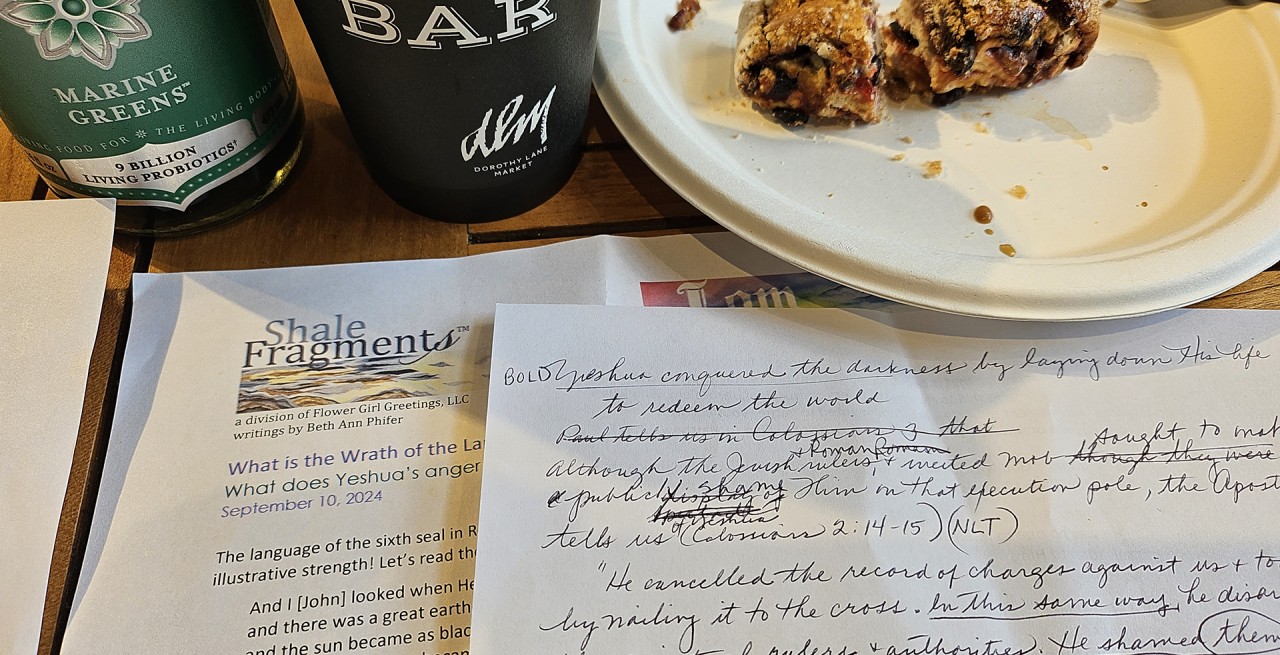 MARINE
GREENS™
ING FOOD FOR ✻ THE LIVING BODY
9 BILLION
LIVING PROBIOTICS†
BAR
dlm
DOROTHY LANE
MARKET
Shale
Fragments™
a division of Flower Girl Greetings, LLC
writings by Beth Ann Phifer
What is the Wrath of the La
What does Yeshua's anger
September 10, 2024
The language of the sixth seal in R
illustrative strength! Let's read the
And I [John] looked when He
and there was a great earth
and the sun became as blac
I am
BOLD Yeshua conquered the darkness by laying down His life
to redeem the world
Paul tells us in Colossians 3 that
Although the Jewish + Roman rulers, + incited mob though they were sought to mak
a public display of shame Him on that execution pole, the Apost
tells us of Yeshua (Colossians 2:14-15) (NLT)
"He cancelled the record of charges against us + to
by nailing it to the cross. In this same way, he disar
rulers + authorities. He shamed them